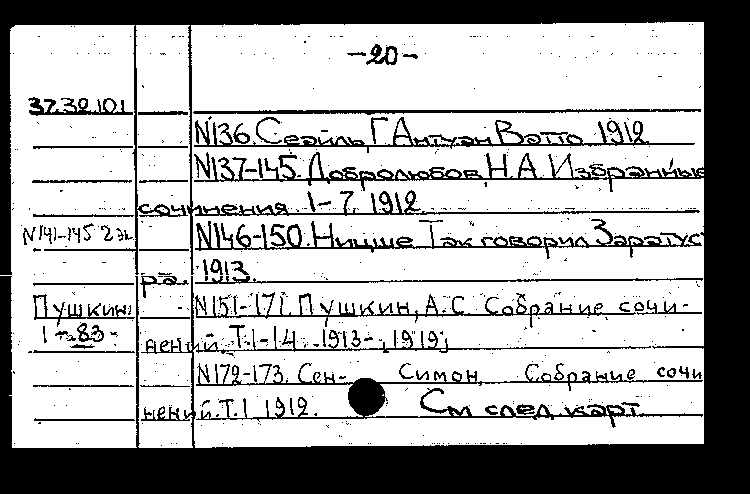 -20-
37.32.101
N136. Сеайль, Г Антуан Ватто 1912
N137-145. Добролюбов, Н.А. Избранные
сочинения 1-7, 1912
N141-145 2 эк N146-150. Ницше Так говорил Заратус
ра. 1913.
Пушкин N151-171. Пушкин, А.С. Собрание сочи-
1-83- нений. Т.1-14. -1913-, 1919;
N172-173. Сен- Симон, Собрание сочи
нений. Т.1 1912. См след карт